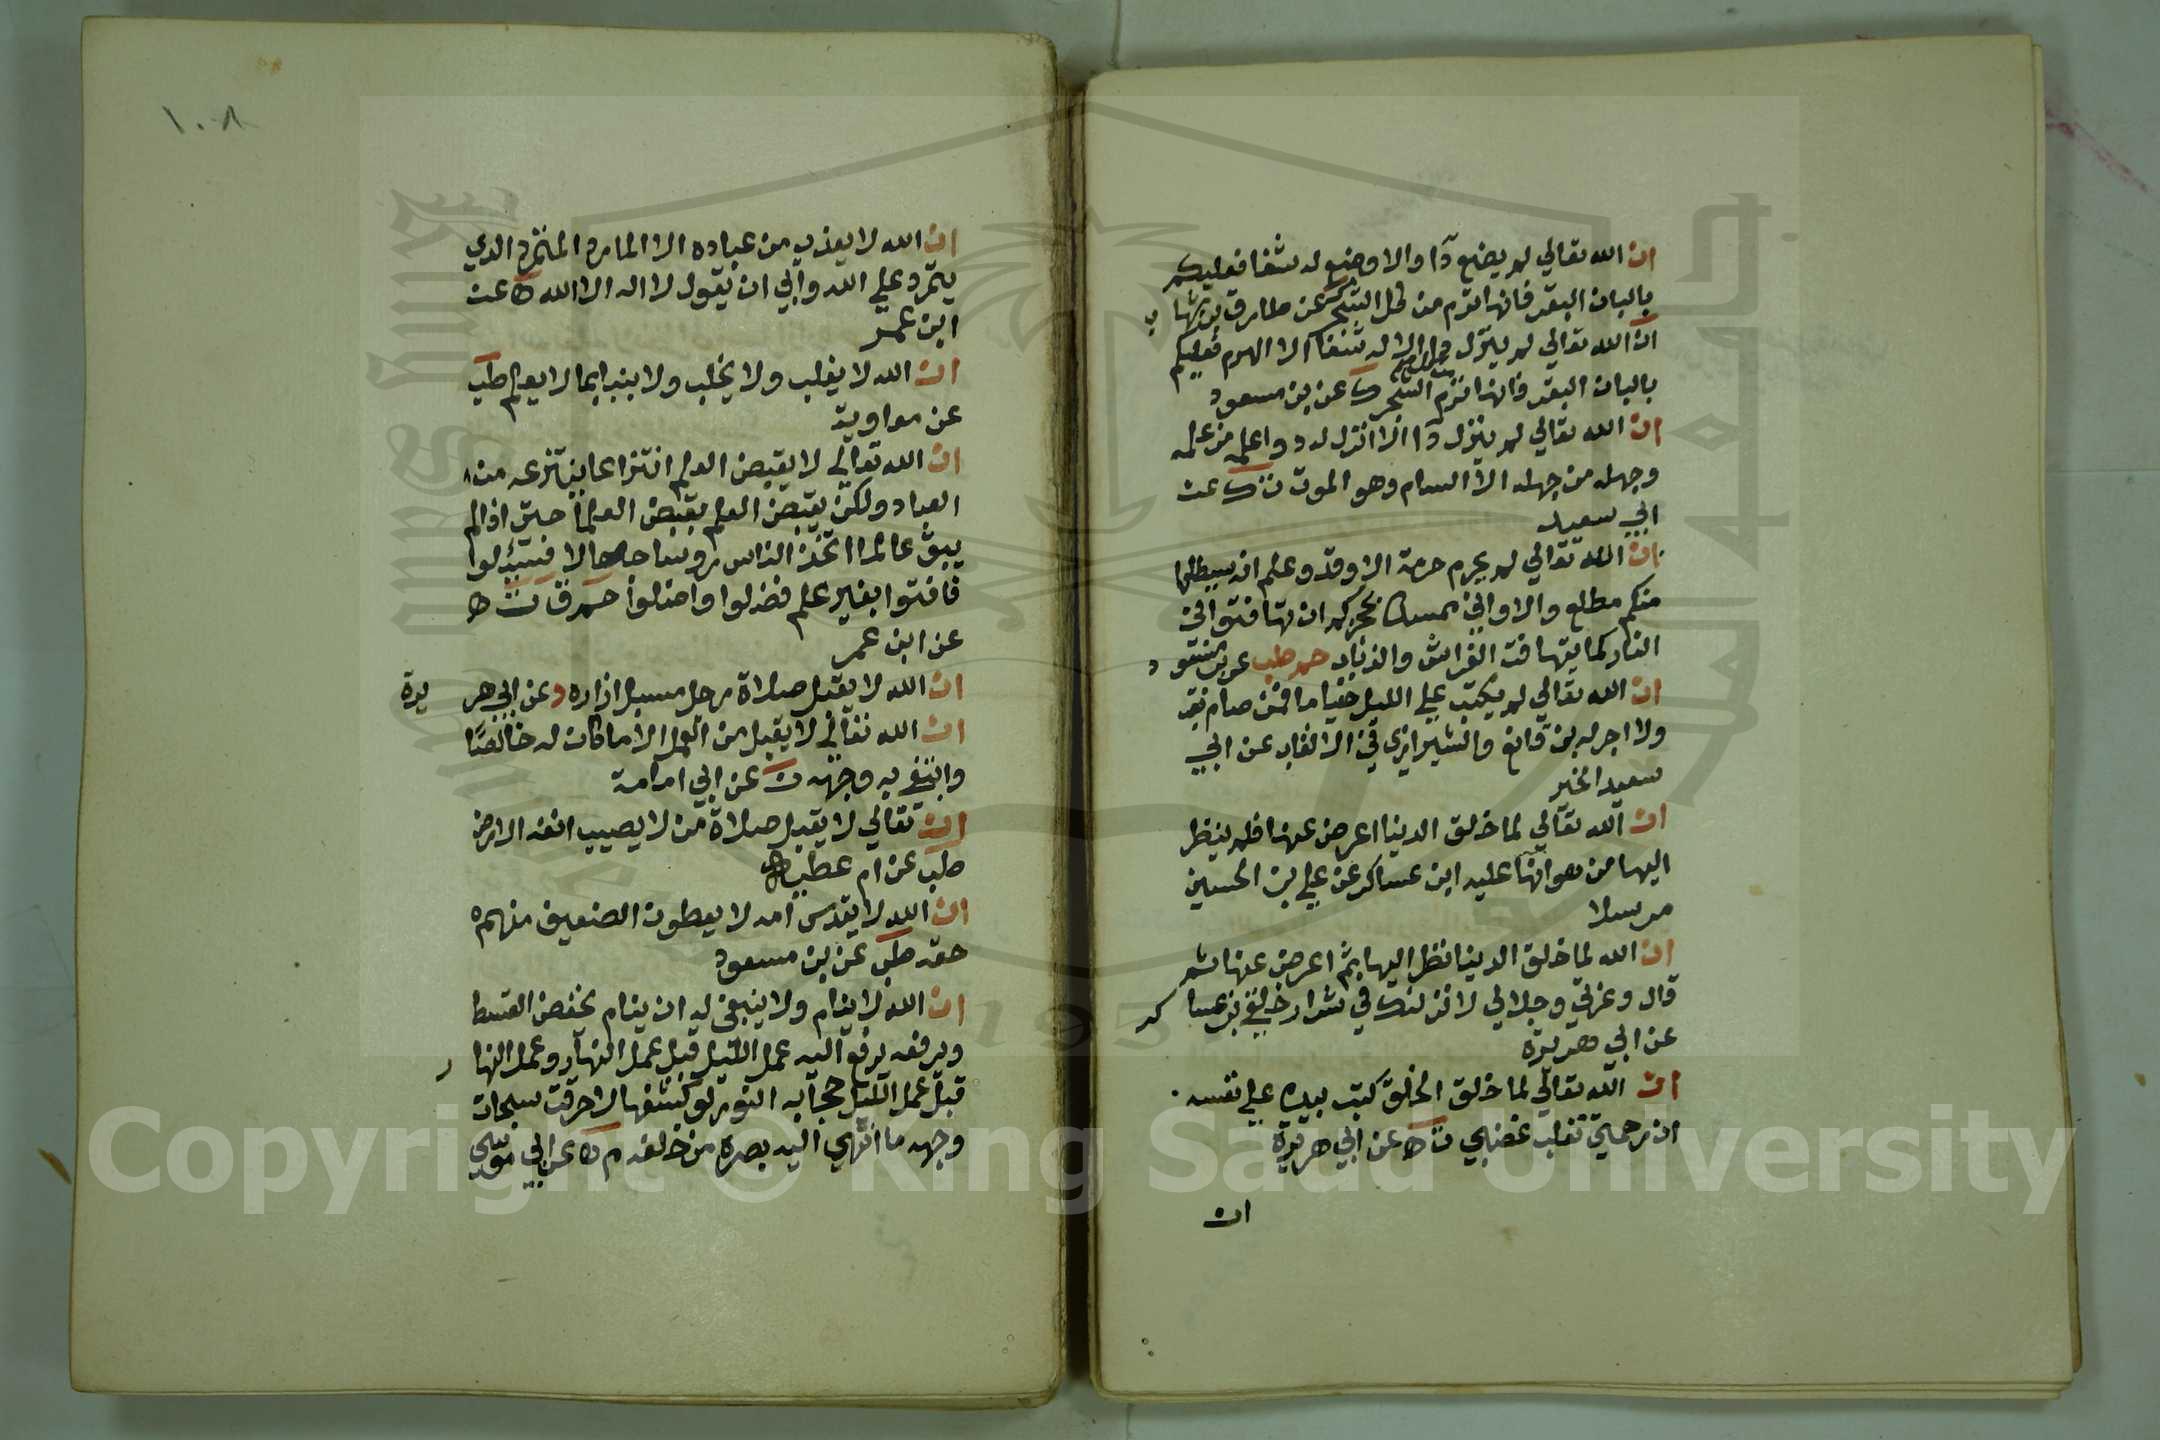 ان الله تعالي لم يضع دآ والا وضع له شفا فعليكم
بالبان البقر فانها ترم من كل الشجر حم عن طارق بن شها
ب
ان الله تعالي لم ينزل دا الا انزل له شفا الا الهرم فعليكم
بالبان البقر فانها ترم من كل الشجر ك عن بن مسعود
ان الله تعالي لم ينزل دآ الا انزل له دواعلمه من علمه
وجهله من جهله الا السام وهو الموت ك عن
ابي سعيد
ان الله تعالي لم يحرم حرمة الا وقد وعلم انه سيطلعها
منكم مطلع والا واني ممسك بحجزكم ان تهافتوا في
النار كما يتهافت الفراش والذباب حم طب عن بن مسعو
د
ان الله تعالي لم يكتب علي الليل صياما فمن صام تعنى
ولا اجر له بن قانع والشيرازي في الالقاب عن ابي
سعيد الخير
ان الله تعالي لما خلق الدنيا اعرض عنها فلم ينظر
اليها من هوانها عليه ابن عساكر عن علي بن الحسين
مرسلا
ان الله لما خلق الدنيا نظر اليها ثم اعرض عنها ثم
قال وعزتي وجلالي لا انزلتك في شرار خلقي بن عسا
كر
عن ابي هريرة
ان الله تعالي لما خلق الخلق كتب بيده علي نفسه
ان رحمتي تغلب غضبي ت ه عن ابي هريرة
ان
١٠٨
ان الله لا يعذب من عباده الا المارد المتمرد الذي
يتمرد علي الله وابي ان يقول لا اله الا الله ه عن
ابن عمر
ان الله لا يغلب ولا يخلب ولا ينبا بما لا يعلم طب
عن معاوية
ان الله تعالي لا يقبض العلم انتزاعا ينتزعه من
العباد ولكن يقبض العلم بقبض العلمآ حتي اذا لم
يبق عالما اتخذ الناس روسا جهالا فسئلوا
فافتوا بغير علم فضلوا واضلوا حم ق ت ه
عن ابن عمر
ان الله لا يقبل صلاة رجل مسبل ازاره د عن ابي هر
يرة
ان الله تعالي لا يقبل من العمل الا ما كان له خالصا
وابتغي به وجهه ن عن ابي امامة
ان تعالي لا يقبل صلاة من لا يصيب انفه الارض
طب عن ام عطيه
ان الله لا يقدس امه لا يعطون الضعيف منهم
حقه طب عن بن مسعود
ان الله لا ينام ولا ينبغي له ان ينام يخفض القسط
ويرفعه يرفع اليه عمل الليل قبل عمل النهار وعمل النها
ر
قبل عمل الليل حجابه النور لو كشفها لاحرقت سبحات
وجهه ما انتهي اليه بصره من خلقه م ه عن ابي موسي
Copyright © King Saud University
1957